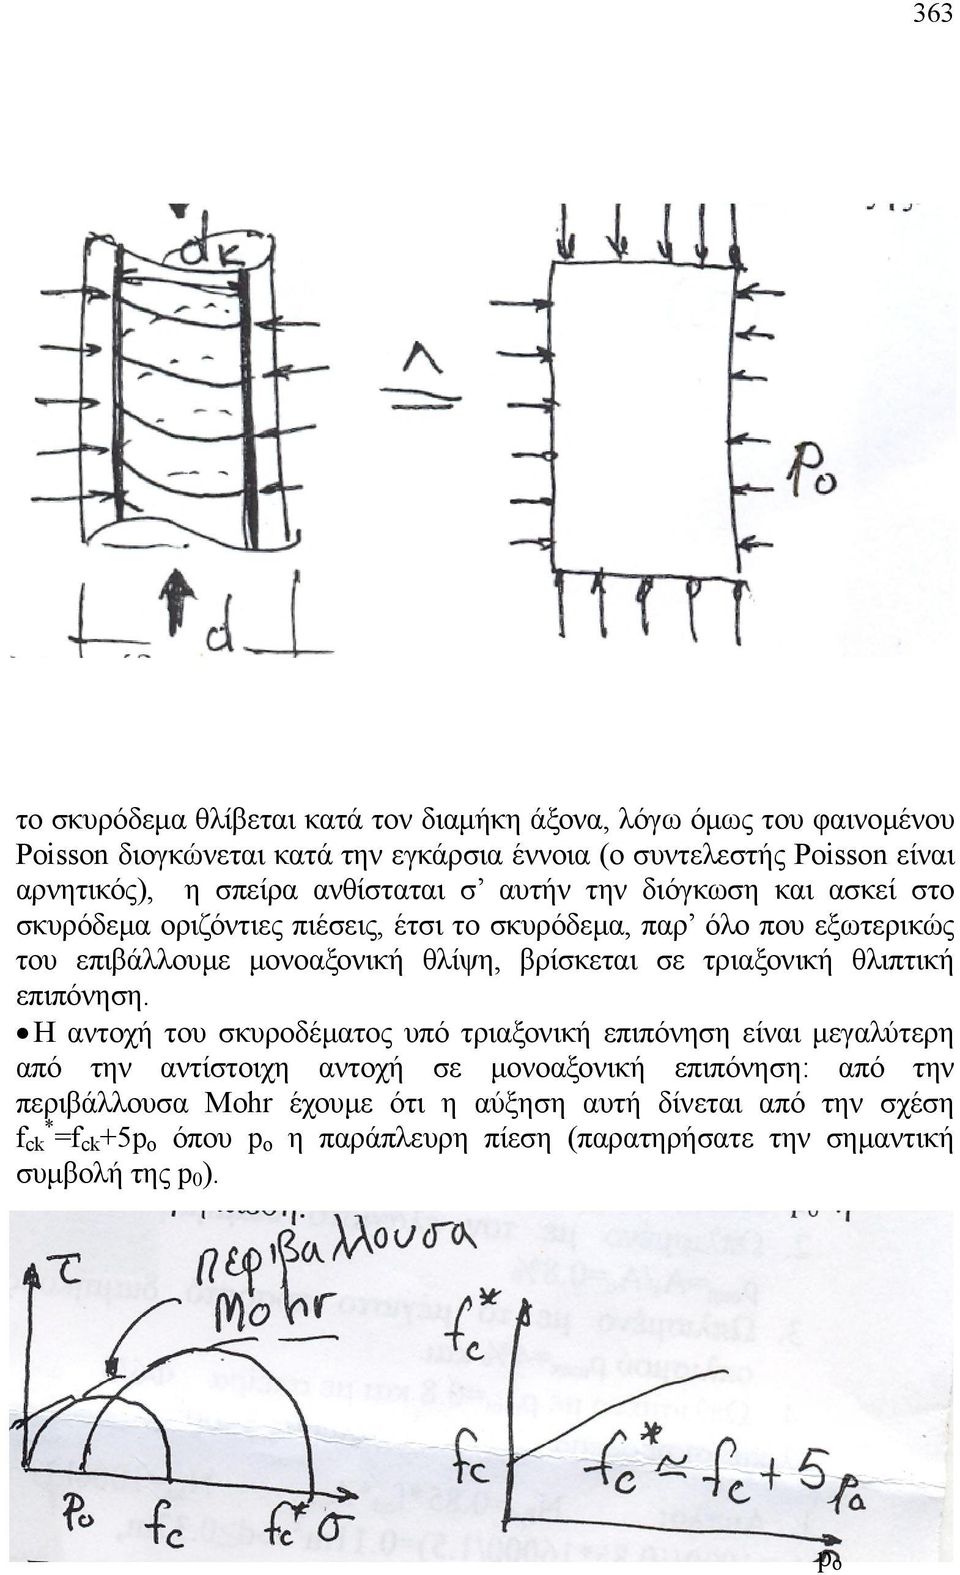 363
dκ
Λ
p₀
d
το σκυρόδεμα θλίβεται κατά τον διαμήκη άξονα, λόγω όμως του φαινομένου
Poisson διογκώνεται κατά την εγκάρσια έννοια (ο συντελεστής Poisson είναι
αρνητικός), η σπείρα ανθίσταται σ’ αυτήν την διόγκωση και ασκεί στο
σκυρόδεμα οριζόντιες πιέσεις, έτσι το σκυρόδεμα, παρ’ όλο που εξωτερικώς
του επιβάλλουμε μονοαξονική θλίψη, βρίσκεται σε τριαξονική θλιπτική
επιπόνηση.
•Η αντοχή του σκυροδέματος υπό τριαξονική επιπόνηση είναι μεγαλύτερη
από την αντίστοιχη αντοχή σε μονοαξονική επιπόνηση: από την
περιβάλλουσα Mohr έχουμε ότι η αύξηση αυτή δίνεται από την σχέση
fck*=fck+5po όπου po η παράπλευρη πίεση (παρατηρήσατε την σημαντική
συμβολή της p0).
περιβαλλουσα
Mohr
τ
p₀ fc fc* σ
fc*
fc
fc* ≃ fc + 5p₀
p₀